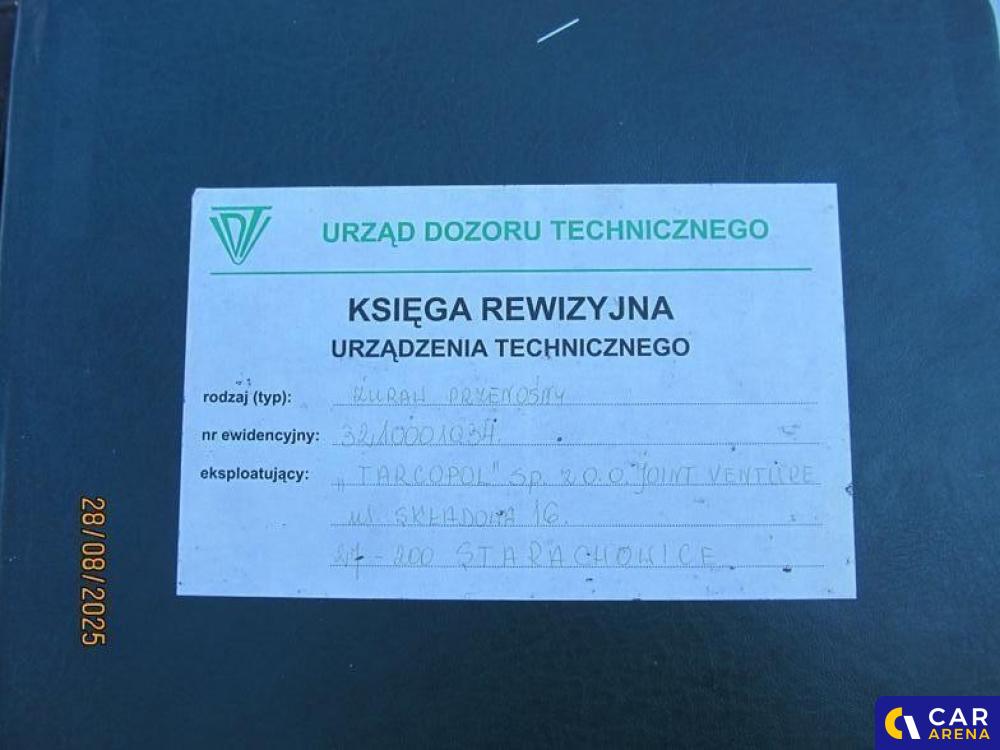 UDT
URZĄD DOZORU TECHNICZNEGO
KSIĘGA REWIZYJNA
URZĄDZENIA TECHNICZNEGO
rodzaj (typ): ŻURAW PRZENOŚNY
nr ewidencyjny: 3210001034
eksploatujący: „TARCOPOL" Sp. z o.o. JOINT VENTURE
ul. SKŁADOWA 16.
27-200 STARACHOWICE
28/08/2025
CAR
ARENA